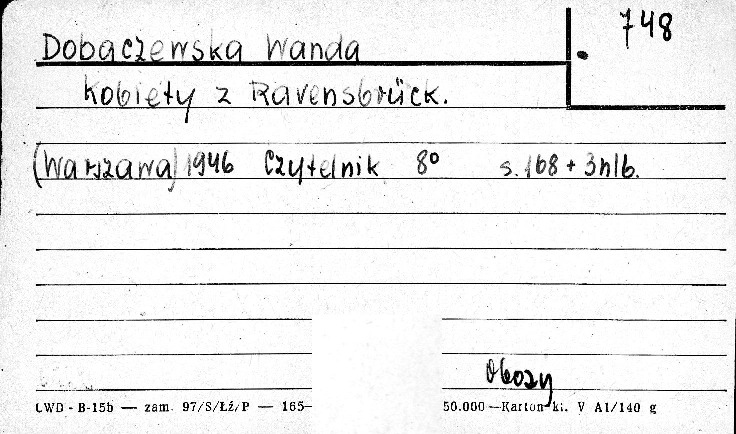 748
Dobaczewska Wanda
Kobiety z Ravensbrück.
(Warszawa) 1946 Czytelnik 8° s. 168 + 3nlb.
Obozy
CWD - B-15b — zam. 97/S/Łź/P — 165— 50.000—Karton kl. V A1/140 g